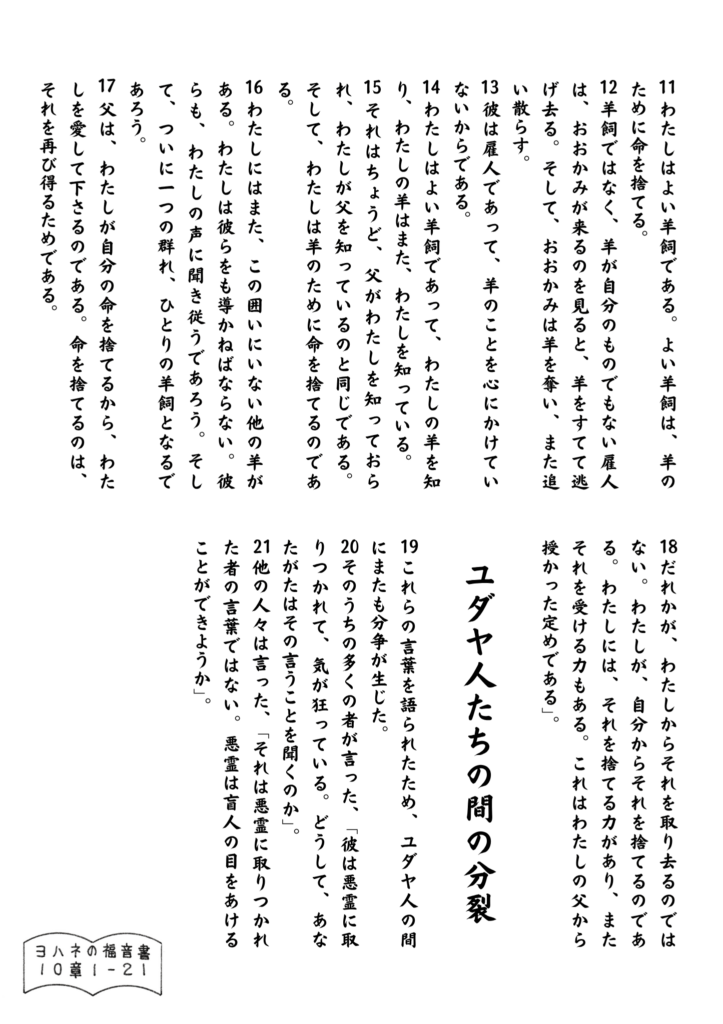 11わたしはよい羊飼である。よい羊飼は、羊の
ために命を捨てる。
12羊飼ではなく、羊が自分のものでもない雇人
は、おおかみが来るのを見ると、羊をすてて逃
げ去る。そして、おおかみは羊を奪い、また追
い散らす。
13彼は雇人であって、羊のことを心にかけてい
ないからである。
14わたしはよい羊飼であって、わたしの羊を知
り、わたしの羊はまた、わたしを知っている。
15それはちょうど、父がわたしを知っておら
れ、わたしが父を知っているのと同じである。
そして、わたしは羊のために命を捨てるのであ
る。
16わたしにはまた、この囲いにいない他の羊が
ある。わたしは彼らをも導かねばならない。彼
らも、わたしの声に聞き従うであろう。そし
て、ついに一つの群れ、ひとりの羊飼となるで
あろう。
17父は、わたしが自分の命を捨てるから、わた
しを愛して下さるのである。命を捨てるのは、
それを再び得るためである。
18だれかが、わたしからそれを取り去るのでは
ない。わたしが、自分からそれを捨てるのであ
る。わたしには、それを捨てる力があり、また
それを受ける力もある。これはわたしの父から
授かった定めである」。
ユダヤ人たちの間の分裂
19これらの言葉を語られたため、ユダヤ人の間
にまたも分争が生じた。
20そのうちの多くの者が言った、「彼は悪霊に取
りつかれて、気が狂っている。どうして、あな
たがたはその言うことを聞くのか」。
21他の人々は言った、「それは悪霊に取りつかれ
た者の言葉ではない。悪霊は盲人の目をあける
ことができようか」。
ヨハネの福音書
10章1-21